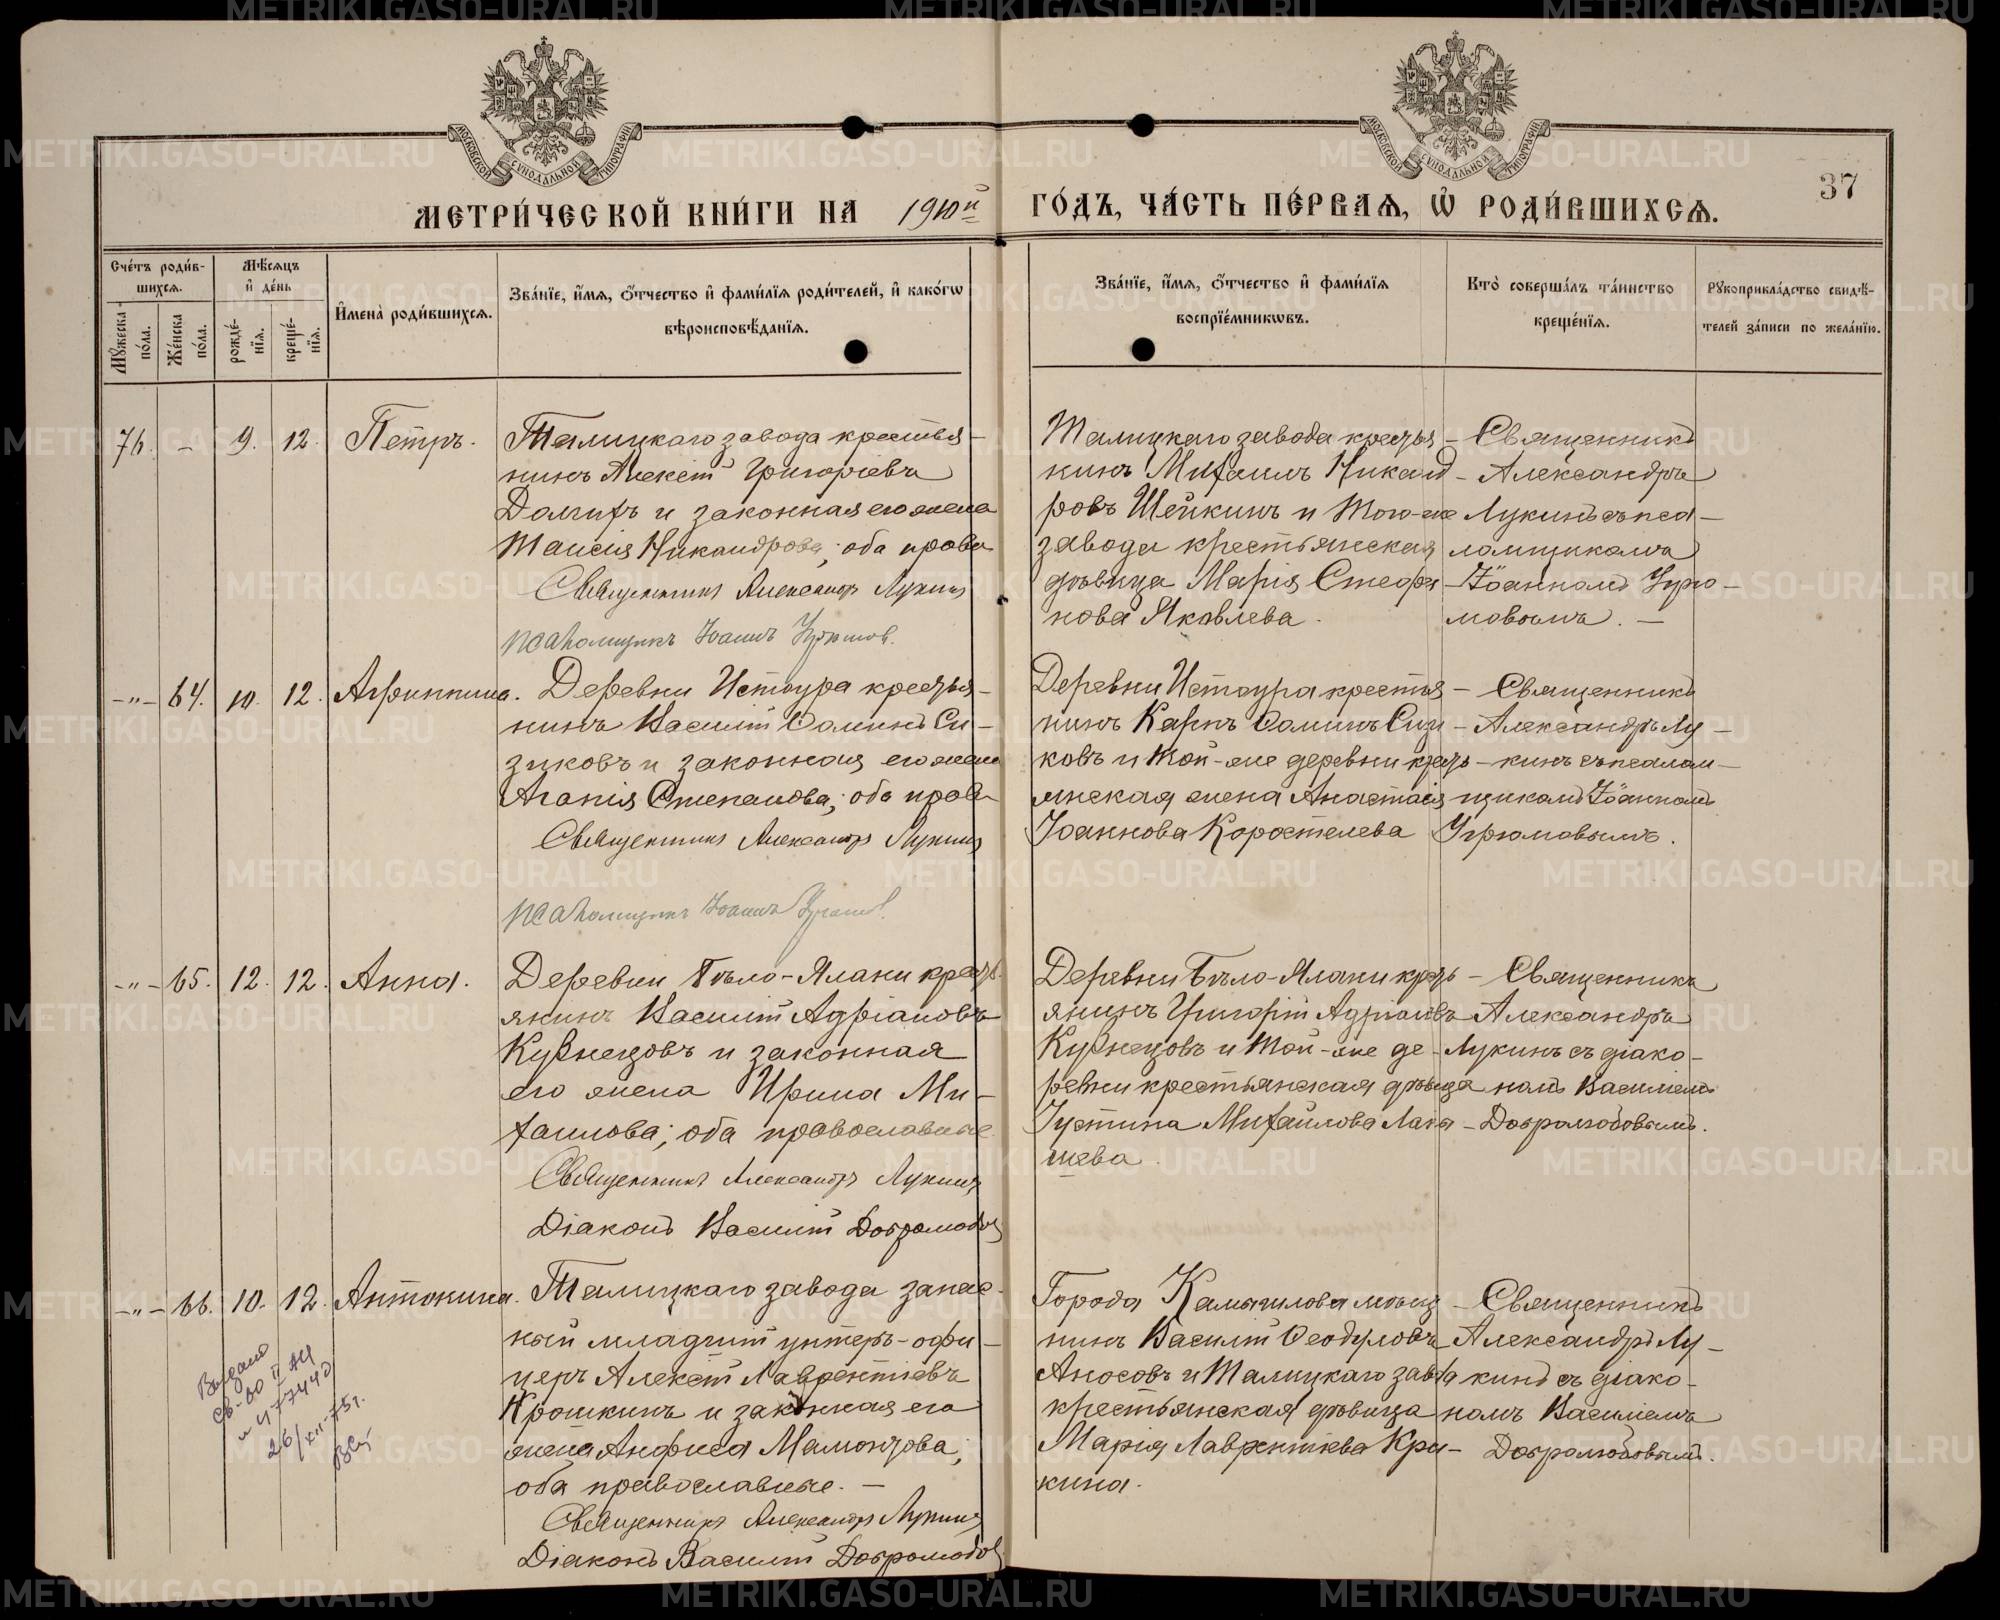 МЕТРИ́ЧЕСКОЙ КНИ́ГИ НА 1910й ГО́ДЪ, ЧА́СТЬ ПЕ́РВАѦ, Ѡ҆ РОДИ́ВШИХСѦ.
37
МОСКОВСКОЙ СѴНОДАЛЬНОЙ ТИПОГРАФІИ
МОСКОВСКОЙ СѴНОДАЛЬНОЙ ТИПОГРАФІИ
Сче́тъ роди́в-
шихсѧ.
Мꙋ́жеска по́ла.
Же́нска по́ла.
Мѣ́сѧцъ
и҆ де́нь
рожде́-
нїѧ.
креще́-
нїѧ.
И҆мена̀ роди́вшихсѧ.
Зва́нїе, и҆́мѧ, ѻ҆́тчество и҆ фами́лїѧ роди́телей, и҆ како́гѡ
вѣроисповѣ́данїѧ.
Зва́нїе, и҆́мѧ, ѻ҆́тчество и҆ фами́лїѧ
воспрїе́мникѡвъ.
Кто̀ соверша́лъ та́инство
креще́нїѧ.
Рꙋкоприкла́дство свидѣ́-
телей за́писи по жела́нїю.
76. - 9. 12. Петръ.
Талицкаго завода крестья-
нинъ Алексій Григоріевъ
Долгихъ и законная его жена
Таисія Никандрова; оба право
Священникъ Александръ Лукинъ
псаломщикъ Іоаннъ Угрюмов.
Талицкаго завода крестья-
нинъ Михаилъ Никанд-
ровъ Шейкинъ и того-же
завода крестьянская
дѣвица Марія Стефа-
нова Яковлева.
Священникъ
Александръ
Лукинъ съ пса-
ломщикомъ
Іоанномъ Угрю-
мовымъ. -
-„- 64. 10. 12. Агрипина.
Деревни Истоура крестья-
нинъ Василій Ѳоминъ Си-
зиковъ и законная его жена
Агапія Степанова; оба право
Священникъ Александръ Лукинъ
псаломщикъ Іоаннъ Угрюмов.
Деревни Истоура крестья-
нинъ Карпъ Ѳоминъ Сизи-
ковъ и той-же деревни кресть-
янская жена Анастасія
Іоаннова Коростелева
Священникъ
Александръ Лу-
кинъ съ псалом-
щикомъ Іоанномъ
Угрюмовымъ.
-„- 65. 12. 12. Анна.
Деревни Бѣло-Ялани кресть-
янинъ Василій Адріановъ
Кузнецовъ и законная
его жена Ирина Ми-
хаилова; оба православные
Священникъ Александръ Лукинъ
Діаконъ Василій Добролюбов
Деревни Бѣло-Ялани кресть-
янинъ Григорій Адріановъ
Кузнецовъ и той-же де-
ревни крестьянская дѣвица
Іустина Михаилова
Священникъ
Александръ
Лукинъ съ діако-
номъ Василіемъ
Добролюбовымъ.
-„- 66. 10. 12. Антонина.
Талицкаго завода запас-
ный младшій унтеръ-офи-
церъ Алексій Лаврентіевъ
Крошкинъ и законная его
жена Анфиса Мамонтова;
оба православные. -
Священникъ Александръ Лукинъ
Діаконъ Василій Добролюбов
Города Камышлова мѣщ-
нинъ Василій Ѳеодуловъ
Аносовъ и Талицкаго завода
крестьянская дѣвица
Марія Лаврентіева
кина.
Священникъ
Александръ Лу-
кинъ съ діако-
номъ Василіемъ
Добролюбовымъ.
Выдано
св-во II АИ
№ 477440
26/XII-75г.
METRIKI.GASO-URAL.RU